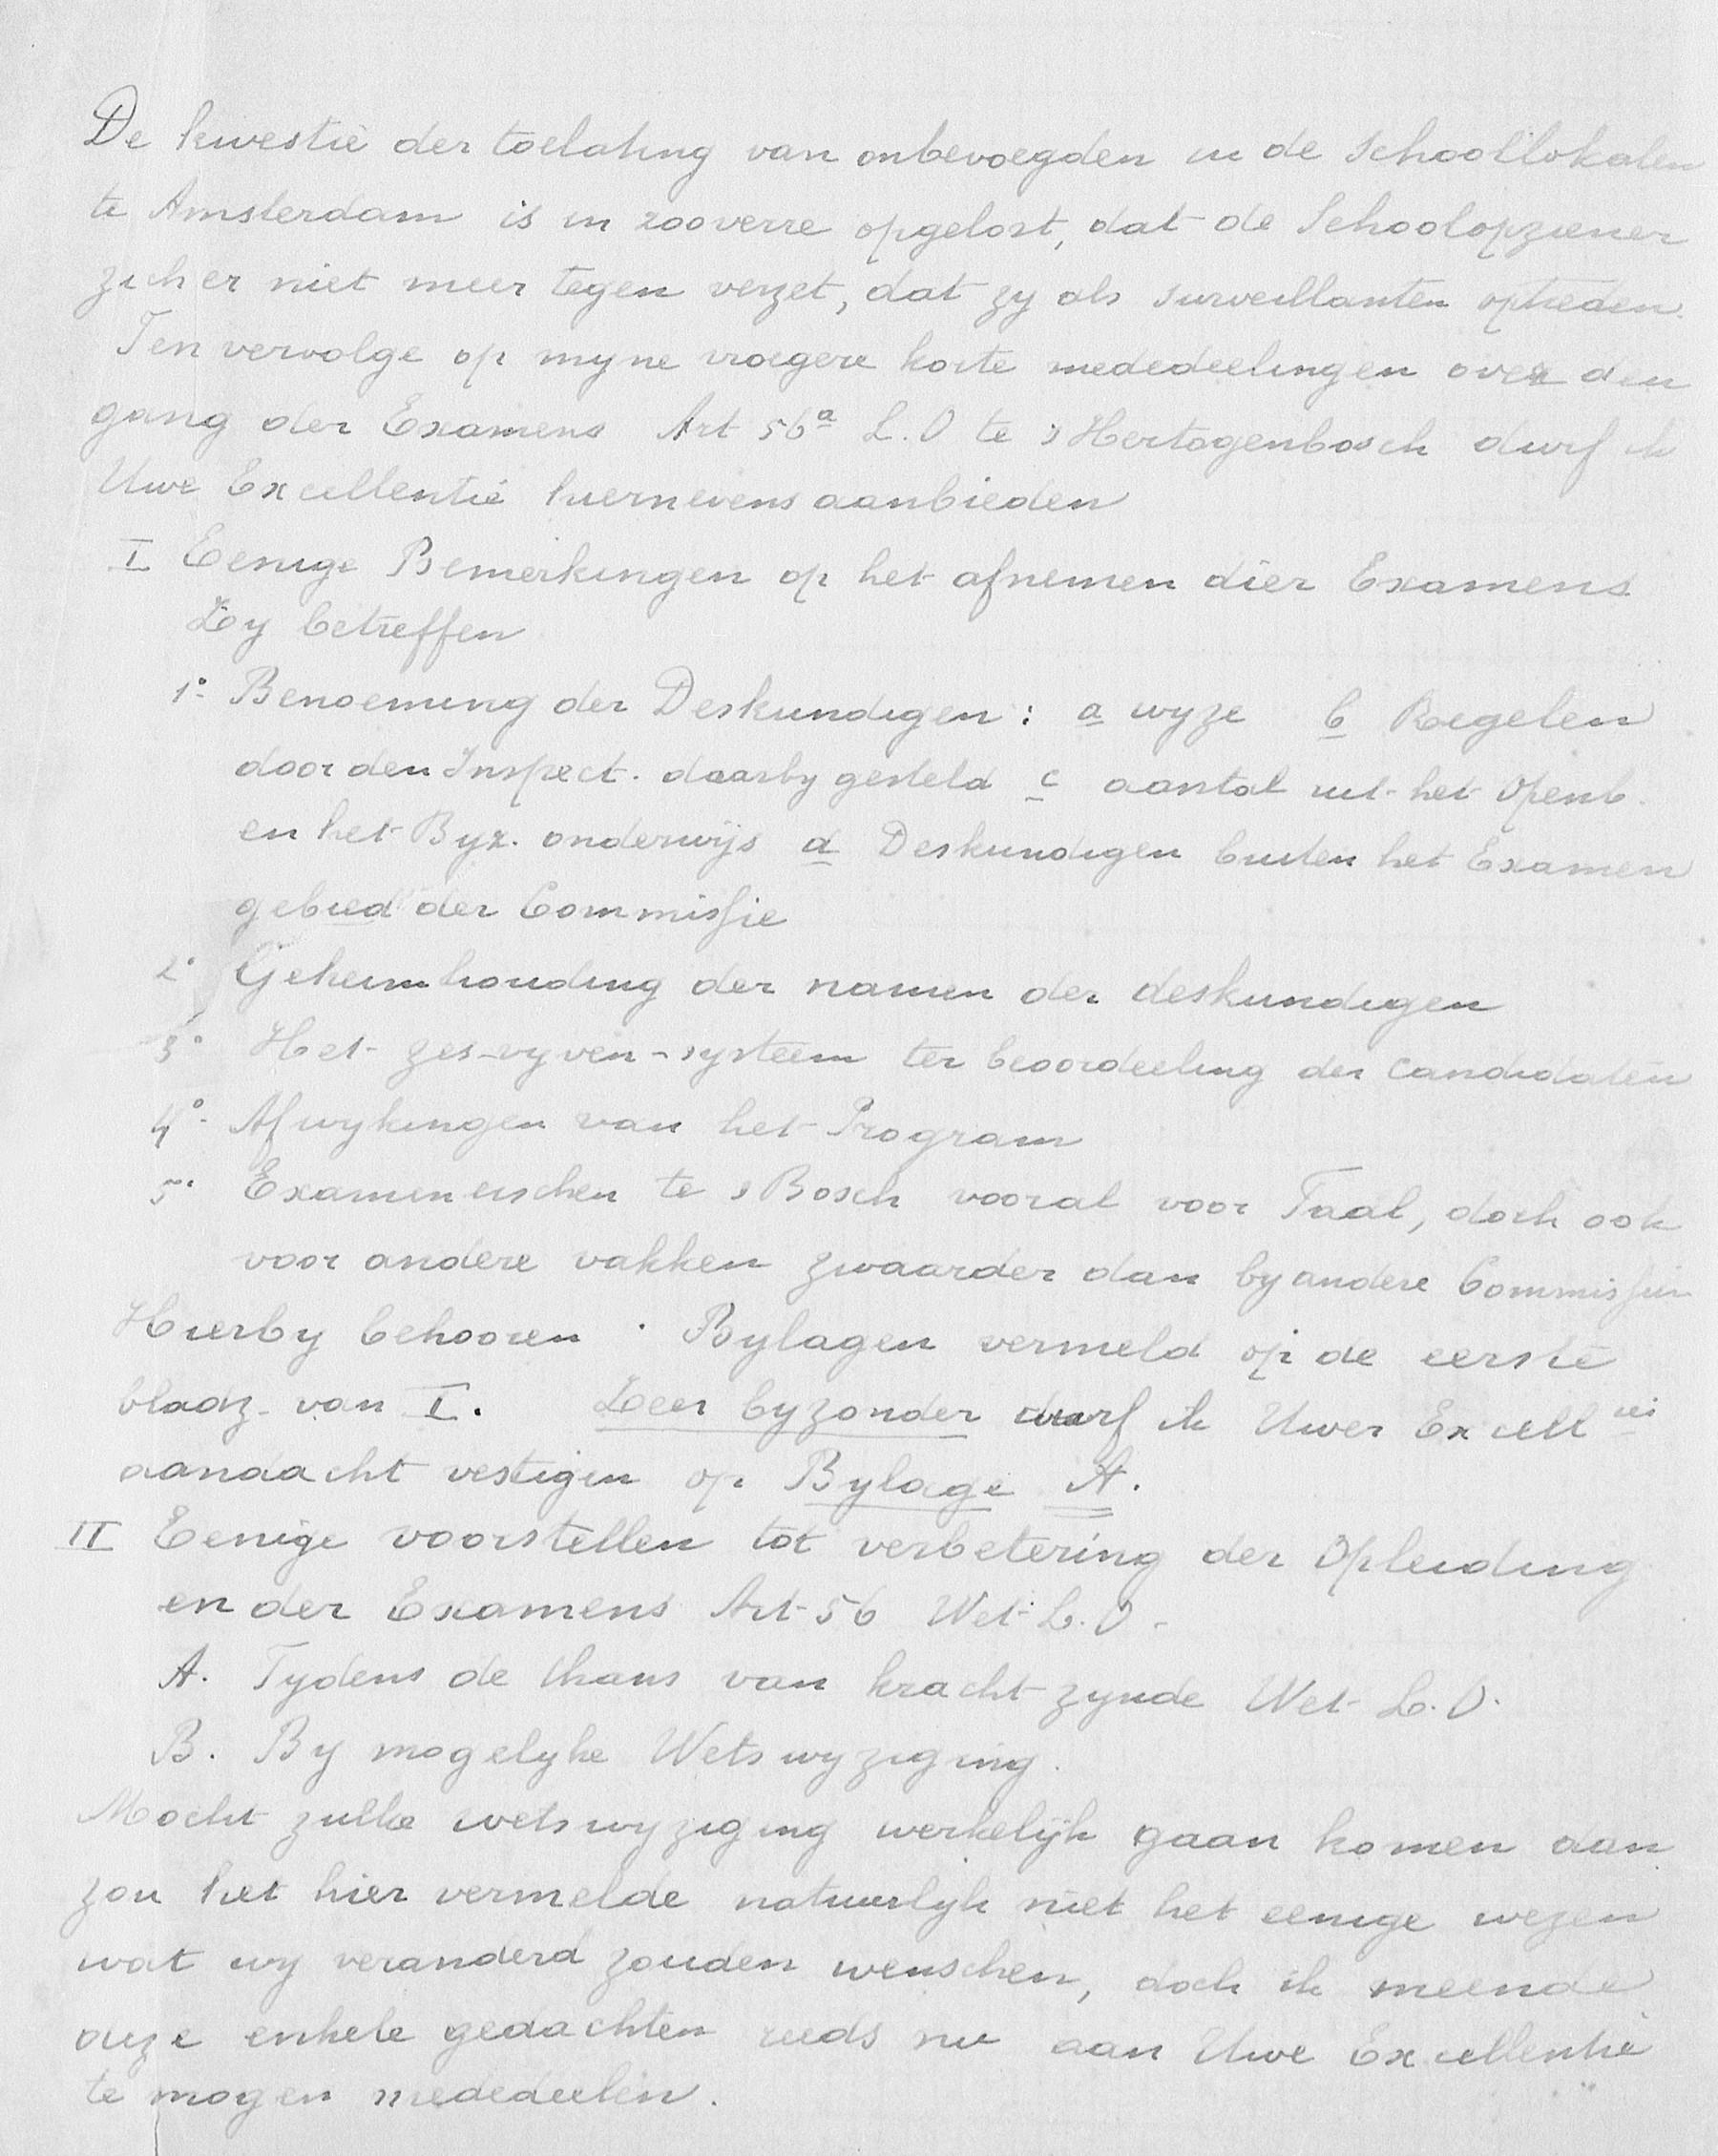 De kwestie der toelating van onbevoegden in de schoollokalen
te Amsterdam is in zooverre opgelost, dat de Schoolopziener
zich er niet meer tegen verzet, dat zy als surveillanten optreden.
Ten vervolge op myne vroegere korte mededeelingen over den
gang der Examens Art 56a L.O te sHertogenbosch durf ik
Uwe Excellentie hiernevens aanbieden
I Eenige Bemerkingen op het afnemen dier Examens
Zy betreffen
1° Benoeming der Deskundigen: a wyze b Regelen
door den Inspect. daarby gesteld c aantal uit het Openb.
en het Byz. onderwijs d Deskundigen buiten het Examen
gebied der Commissie
2° Geheimhouding der namen der deskundigen
3° Het zes-vyven-systeem ter beoordeeling der candidaten
4° Afwykingen van het Program
5° Exameneischen te sBosch vooral voor Taal, doch ook
voor andere vakken zwaarder dan by andere Commissien
Hierby behooren . Bylagen vermeld op de eerste
bladz. van I. Zeer byzonder durf ik Uwer Excell ies
aandacht vestigen op Bylage A.
II Eenige voorstellen tot verbetering der Opleiding
en der Examens Art 56 Wet L.O.
A. Tydens de thans van kracht zynde Wet L.O.
B. By mogelyke Wetswyziging.
Mocht zulke wetswyziging werkelijk gaan komen dan
zou het hier vermelde natuurlijk niet het eenige wezen
wat wy veranderd zouden wenschen, doch ik meende
onze enkele gedachten reeds nu aan Uwe Excellentie
te mogen mededeelen.